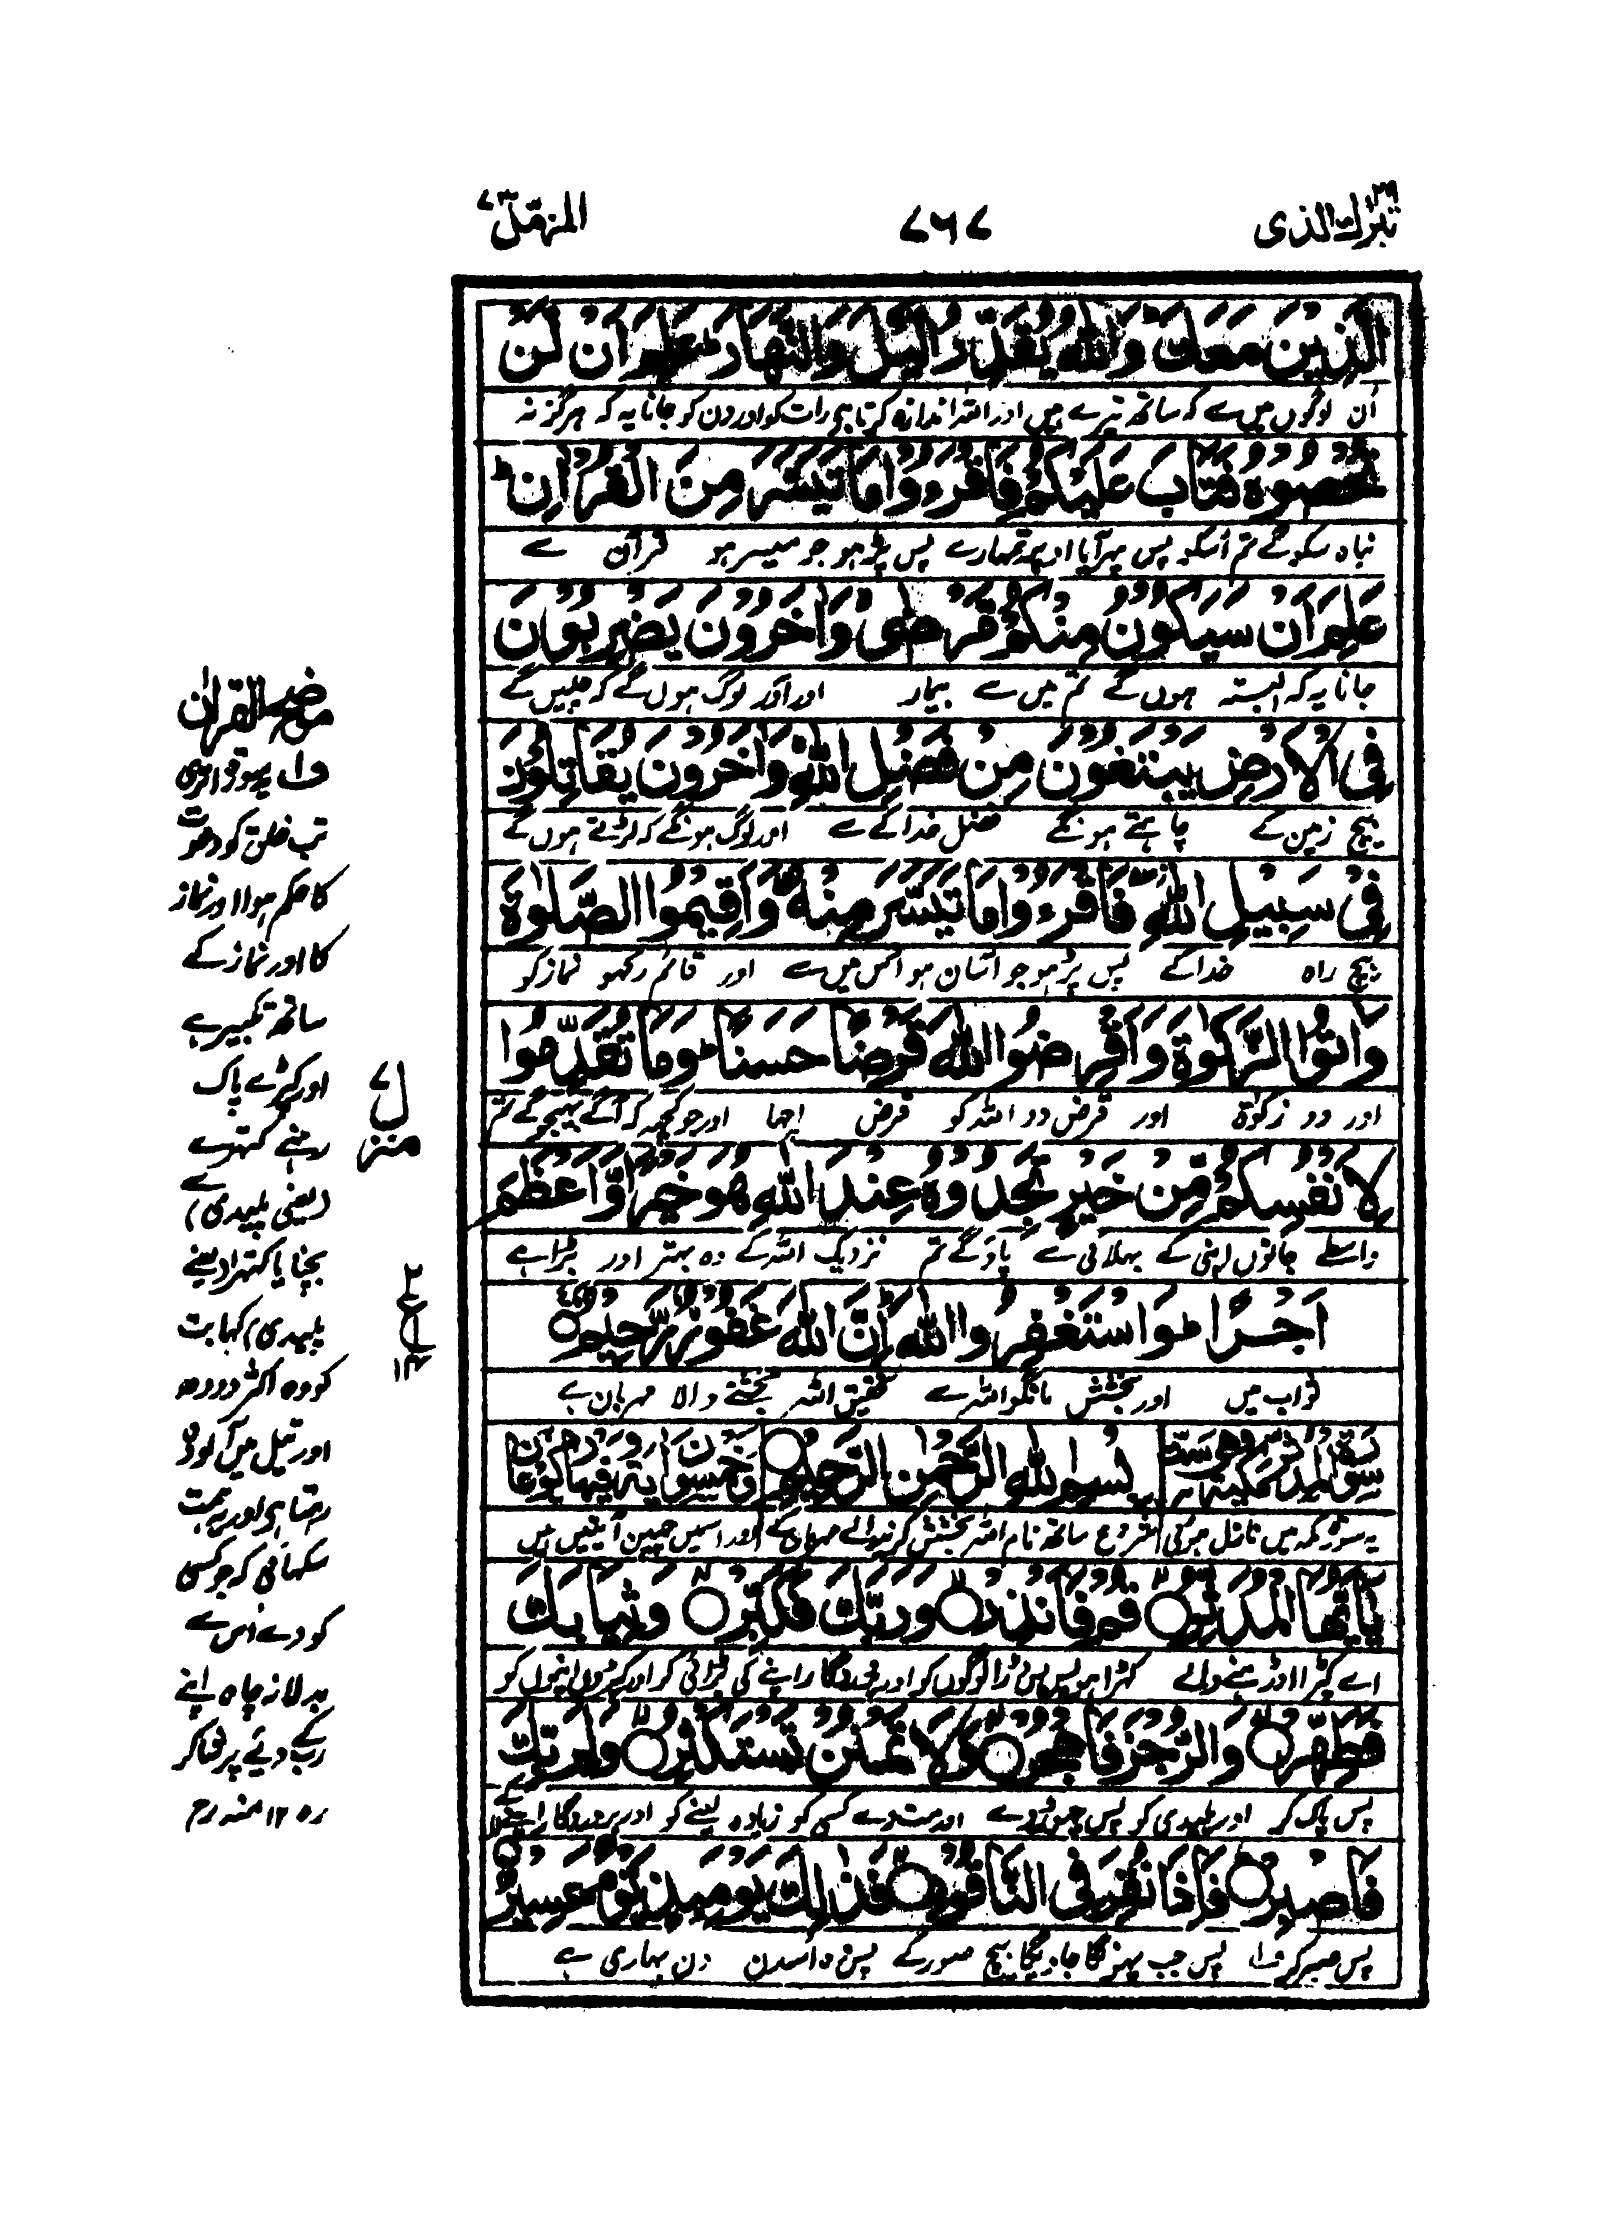 تبٰرك الذی ٢٩
٧٦٧
المزمّل ٧٣
الَّذِيْنَ مَعَكَ ؕ وَاللّٰهُ يُقَدِّرُ الَّيْلَ وَالنَّهَارَ ؕ عَلِمَ اَنْ لَّنْ
اُن لوگوں میں سے کہ ساتھ تیرے ہیں اور اللہ اندازہ کرتا ہی رات کو اور دن کو جانا یہ کہ ہرگز نہ
تُحْصُوْهُ فَتَابَ عَلَيْكُمْ فَاقْرَءُوْا مَا تَيَسَّرَ مِنَ الْقُرْاٰنِ ؕ
نباہ سکو گے تم اُسکو پس پھر آیا اوپر تمہارے پس پڑھو جو میسر ہو قرآن سے
عَلِمَ اَنْ سَيَكُوْنُ مِنْكُمْ مَّرْضٰى ۙ وَاٰخَرُوْنَ يَضْرِبُوْنَ
جانا یہ کہ البتہ ہوں گے تم میں سے بیمار اور اَور لوگ ہوں گے کہ چلیں گے
فِى الْاَرْضِ يَبْتَغُوْنَ مِنْ فَضْلِ اللّٰهِ ۙ وَاٰخَرُوْنَ يُقَاتِلُوْنَ
بیچ زمین کے چاہتے ہونگے فضل خدا کے سے اور لوگ ہونگے کہ لڑتے ہوں گے
فِىْ سَبِيْلِ اللّٰهِ ۖ فَاقْرَءُوْا مَا تَيَسَّرَ مِنْهُ ۙ وَاَقِيْمُوا الصَّلٰوةَ
بیچ راہ خدا کے پس پڑھو جو آسان ہو اس میں سے اور قائم رکھو نماز کو
وَاٰتُوا الزَّكٰوةَ وَاَقْرِضُوا اللّٰهَ قَرْضًا حَسَنًا ؕ وَمَا تُقَدِّمُوْا
اور دو زکوٰۃ اور قرض دو اللہ کو قرض اچھا اور جو کچھ کہ آگے بھیجو گے تم
لِاَنْفُسِكُمْ مِّنْ خَيْرٍ تَجِدُوْهُ عِنْدَ اللّٰهِ هُوَ خَيْرًا وَّاَعْظَمَ
واسطے جانوں اپنی کے بھلائی سے پاؤ گے تم نزدیک اللہ کے وہ بہتر اور بڑا ہے
اَجْرًا ؕ وَاسْتَغْفِرُوا اللّٰهَ ؕ اِنَّ اللّٰهَ غَفُوْرٌ رَّحِيْمٌ ○
ثواب میں اور بخشش مانگو اللہ سے تحقیق اللہ بخشنے والا مہربان ہے
سورة المدثر مكية وهى بِسْمِ اللّٰهِ الرَّحْمٰنِ الرَّحِيْمِ ○ ست وخمسون اية وفيها ركوعان
یہ سورۃ مکہ میں نازل ہوئی شروع ساتھ نام اللہ بخشش کرنیوالے مہربان کے اور اسمیں چھپن آیتیں ہیں
يٰٓاَيُّهَا الْمُدَّثِّرُ ○ قُمْ فَاَنْذِرْ ○ وَرَبَّكَ فَكَبِّرْ ○ وَثِيَابَكَ
اے کپڑا اوڑھنے والے کھڑا ہو پس ڈرا لوگوں کو اور پروردگار اپنے کی بڑائی کر اور کپڑوں اپنوں کو
فَطَهِّرْ ○ وَالرُّجْزَ فَاهْجُرْ ○ وَلَا تَمْنُنْ تَسْتَكْثِرُ ○ وَلِرَبِّكَ
پس پاک کر اور پلیدی کو پس چھوڑ دے اور مت دے کسی کو زیادہ لینے کو اور پروردگار اپنے کے
فَاصْبِرْ ○ فَاِذَا نُقِرَ فِى النَّاقُوْرِ ○ فَذٰلِكَ يَوْمَئِذٍ يَّوْمٌ عَسِيْرٌ ○
پس صبر کر ف١ پس جب پھونکا جاویگا بیچ صور کے پس وہ اسدن دن بھاری ہے
موضح القرآن
ف١ یہ سورۃ اتری
تب خلق کو دعوت
کا حکم ہوا اور نماز
کا اور نماز کے
ساتھ تکبیر ہے
اور کپڑے پاک
رہنے کتھرے سے
(یعنی پلیدی)
بچنا یا کتھرا (یعنے
پلیدی) کہا بت
کو وہ اکثر دودھ
اور تیل میں آلودہ
رہتا ہی اور یہ ہمت
سکھائی کہ جو کسی
کو دے اس سے
بدلا نہ چاہ اپنے
رب کے دیے پر شاکر
رہ ١٢ منہ رح
منزل ٧
٢
ع
١٤